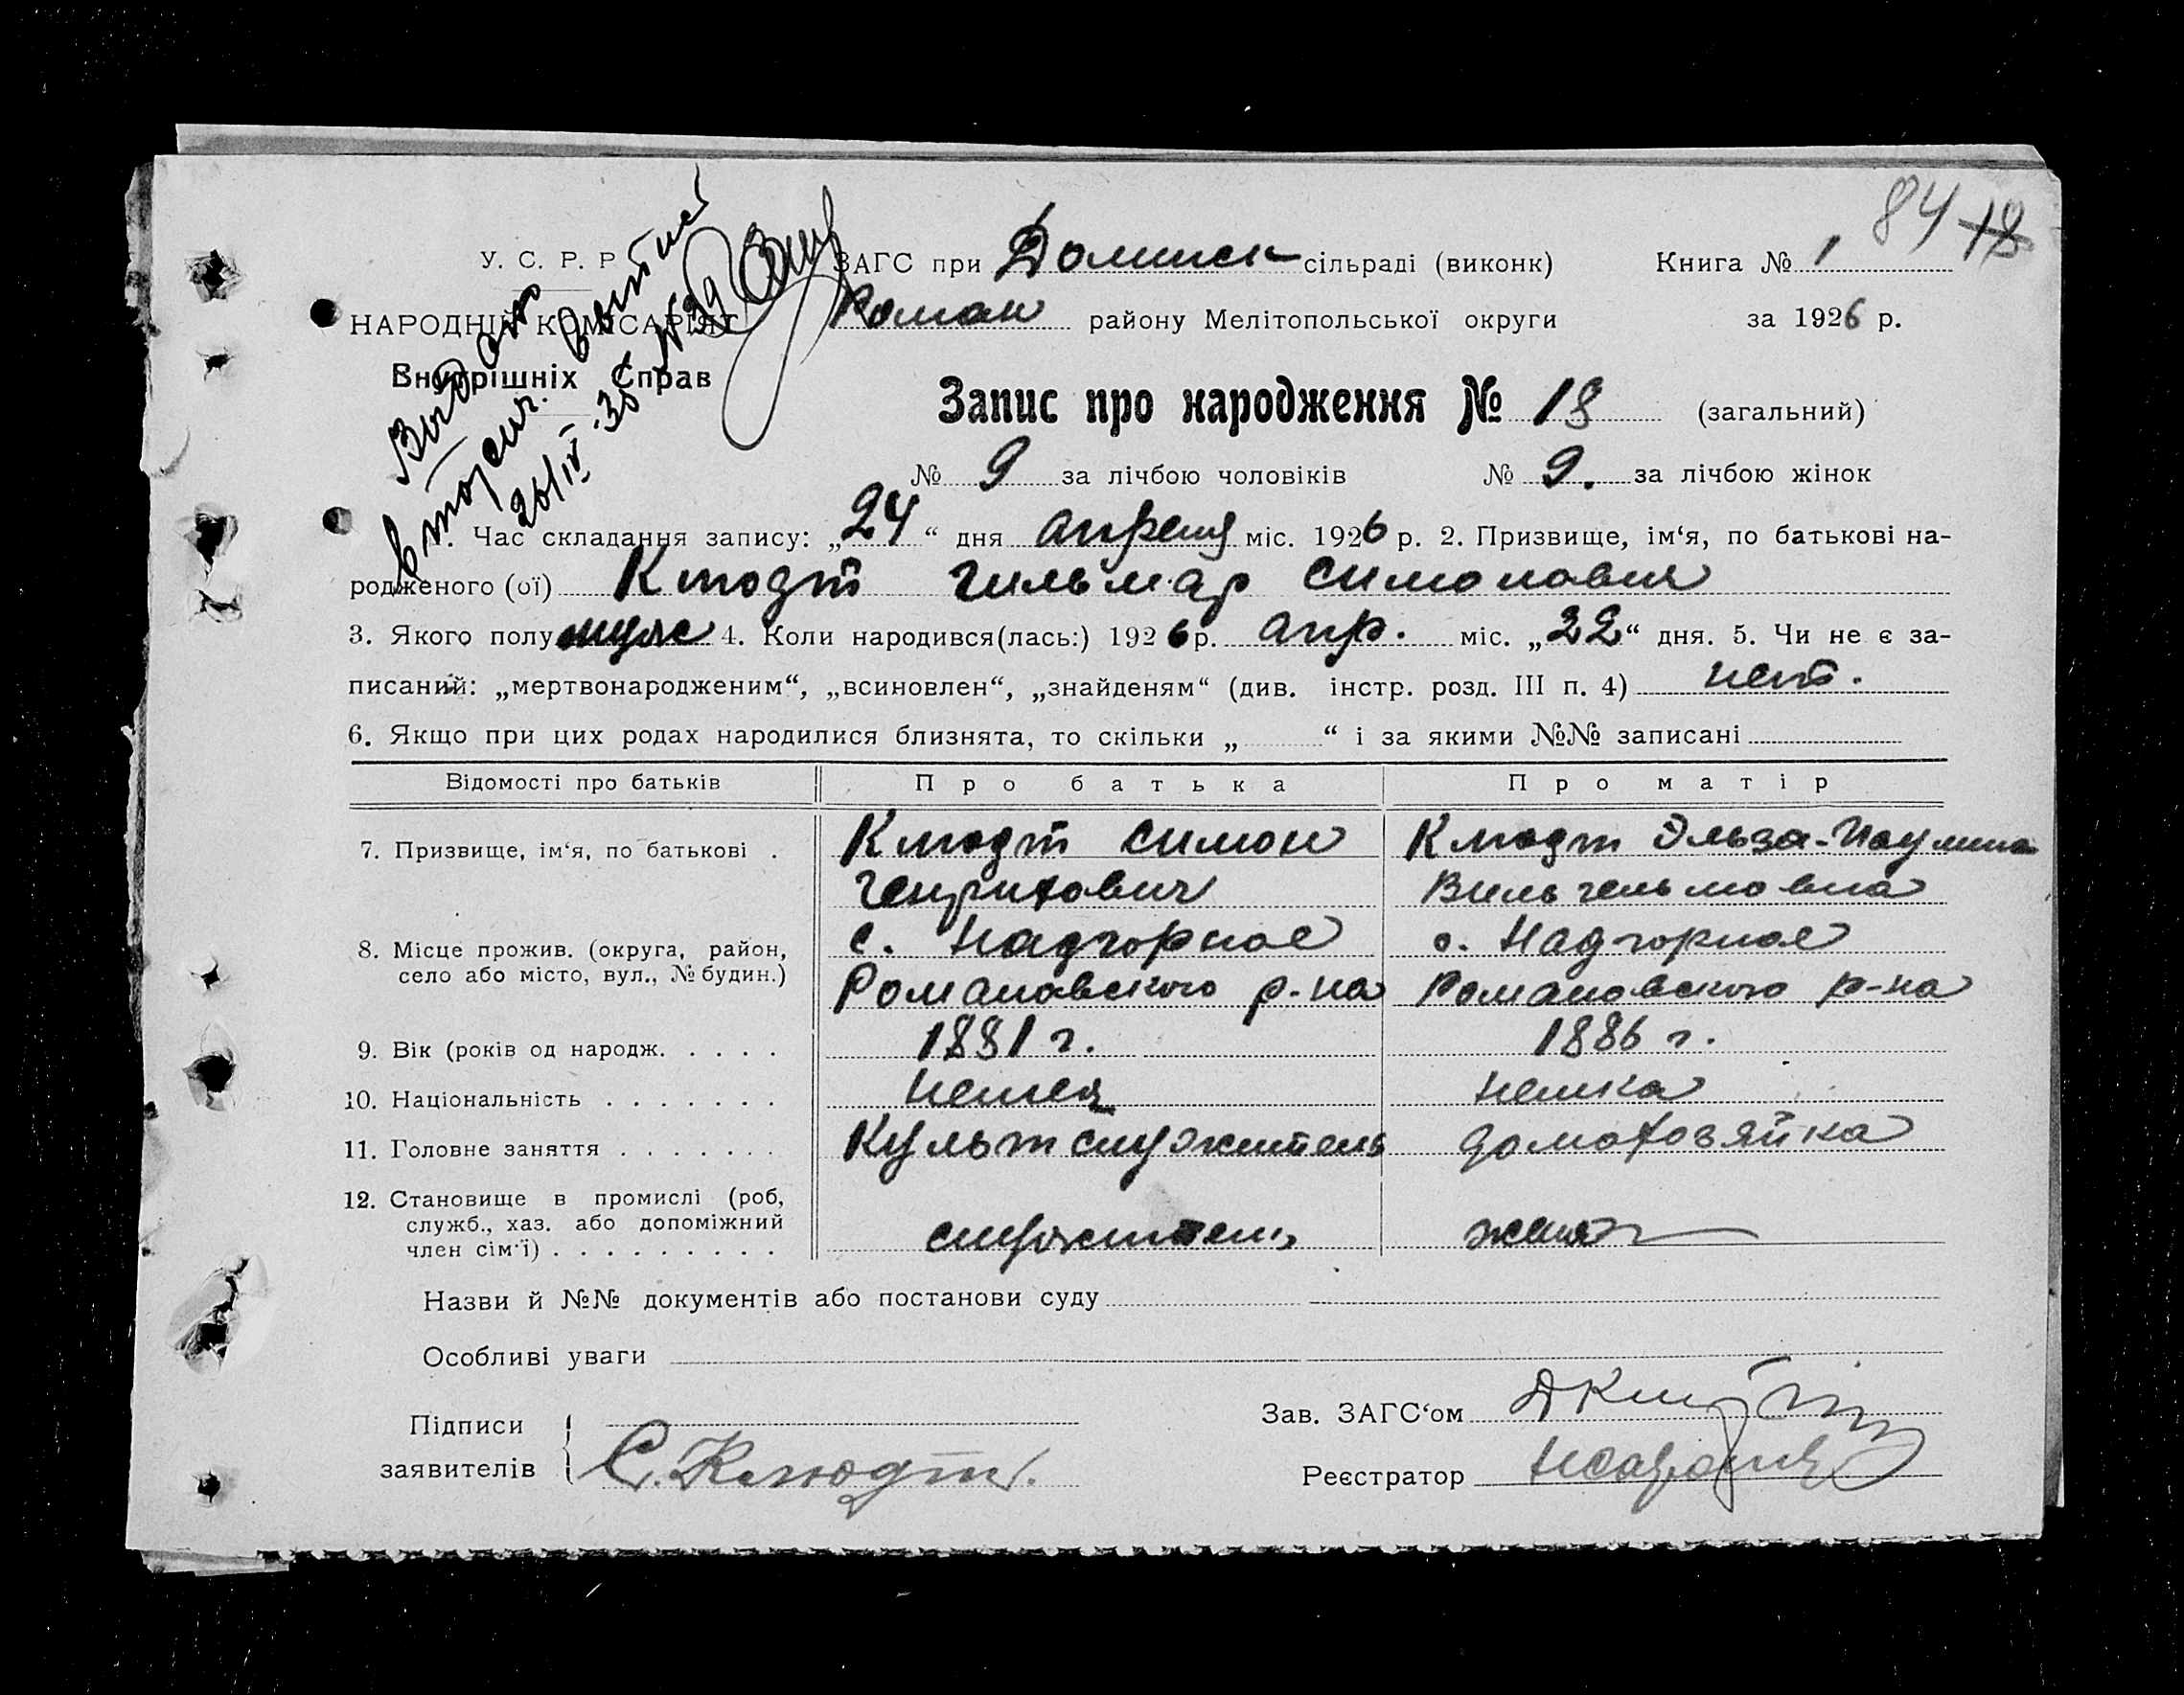 84 18
У. С. Р. Р.
ЗАГС при Долинск сільраді (виконк) Книга № 1
НАРОДНІЙ КОМІСАРІЯТ
Роман району Мелітопольської округи за 1926 р.
Внутрішніх Справ
Выдано
вторич. выпись
26/IV-35 №29
Запис про народження № 18 (загальний)
№ 9 за лічбою чоловіків № 9. за лічбою жінок
1. Час складання запису: „24“ дня апреля міс. 1926 р. 2. Призвище, ім‘я, по батькові на-
родженого (ої) Клюдт Гильмар Симонович
3. Якого полу муж 4. Коли народився(лась:) 1926 р. апр. міс. „22“ дня. 5. Чи не є за-
писаний: „мертвонародженим“, „всиновлен“, „знайденям“ (див. інстр. розд. III п. 4) нет.
6. Якщо при цих родах народилися близнята, то скільки „ “ і за якими №№ записані
Відомості про батьків Про батька Про матір
7. Призвище, ім‘я, по батькові . Клюдт Симон Клюдт Эльза-Паулина
Генрихович Вильгельмовна
8. Місце прожив. (округа, район, с. Надгорное с. Надгорное
село або місто, вул., № будин.) Романовского р-на Романовского р-на
9. Вік (років од народж. . . . . 1881 г. 1886 г.
10. Національність . . . . . . . немец немка
11. Головне заняття . . . . . . . Культслужитель домохозяйка
12. Становище в промислі (роб,
служб., хаз. або допоміжний
член сім‘ї) . . . . . . . . . служитель жена
Назви й №№ документів або постанови суду
Особливі уваги
Підписи
заявителів С. Клюдт.
Зав. ЗАГС‘ом
Реєстратор